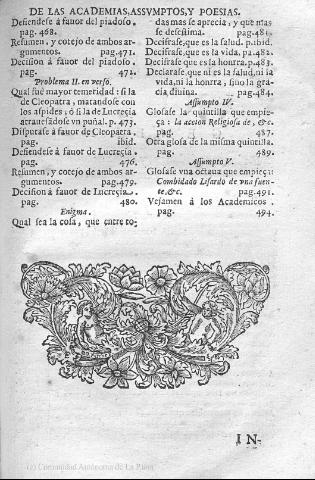 DE LAS ACADEMIAS, ASSVMPTOS, Y POESIAS.
Defiendese à fauor del piadoso.
pag. 468.
Resumen, y cotejo de ambos ar-
gumentos. pag. 471.
Decision à fauor del piadoso.
pag. 472.
Problema II. en verso.
Qual fue mayor temeridad: si la
de Cleopatra, matandose con
los aspides, ò si la de Lucrecia
atrauesãdose vn puñal. p. 473.
Disputase à fauor de Cleopatra.
pag. ibid.
Defiendese à fauor de Lucrecia.
pag. 476.
Resumen, y cotejo de ambos ar-
gumentos. pag. 479.
Decision à fauor de Lucrecia.
pag. 480.
Enigma.
Qual sea la cosa, que entre to-
das mas se aprecia, y que mas
se desestima. pag. 481.
Decifrase, que es la salud. p. ibid.
Decifrase que es la vida. pa. 482.
Decifrase que es la honrra. p. 483.
Declarase, que ni es la salud, ni la
vida, ni la honrra, sino la gra-
cia diuina. pag. 484.
Assumpto IV.
Glosase la quintilla que empie-
ça: la accion Religiosa de, &c.
pag. 487.
Otra glosa de la misma quintilla.
pag. 489.
Assumpto V.
Glosase vna octaua que empieça:
Combidado Lisardo de vna fuen-
te, &c. pag. 491.
Vejamen à los Academicos.
pag. 494.
IN-
(c) Comunidad Autónoma de La Rioja